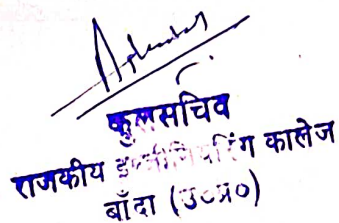 कुलसचिव
राजकीय इन्जीनियरिंग कालेज
बाँदा (उ०प्र०)